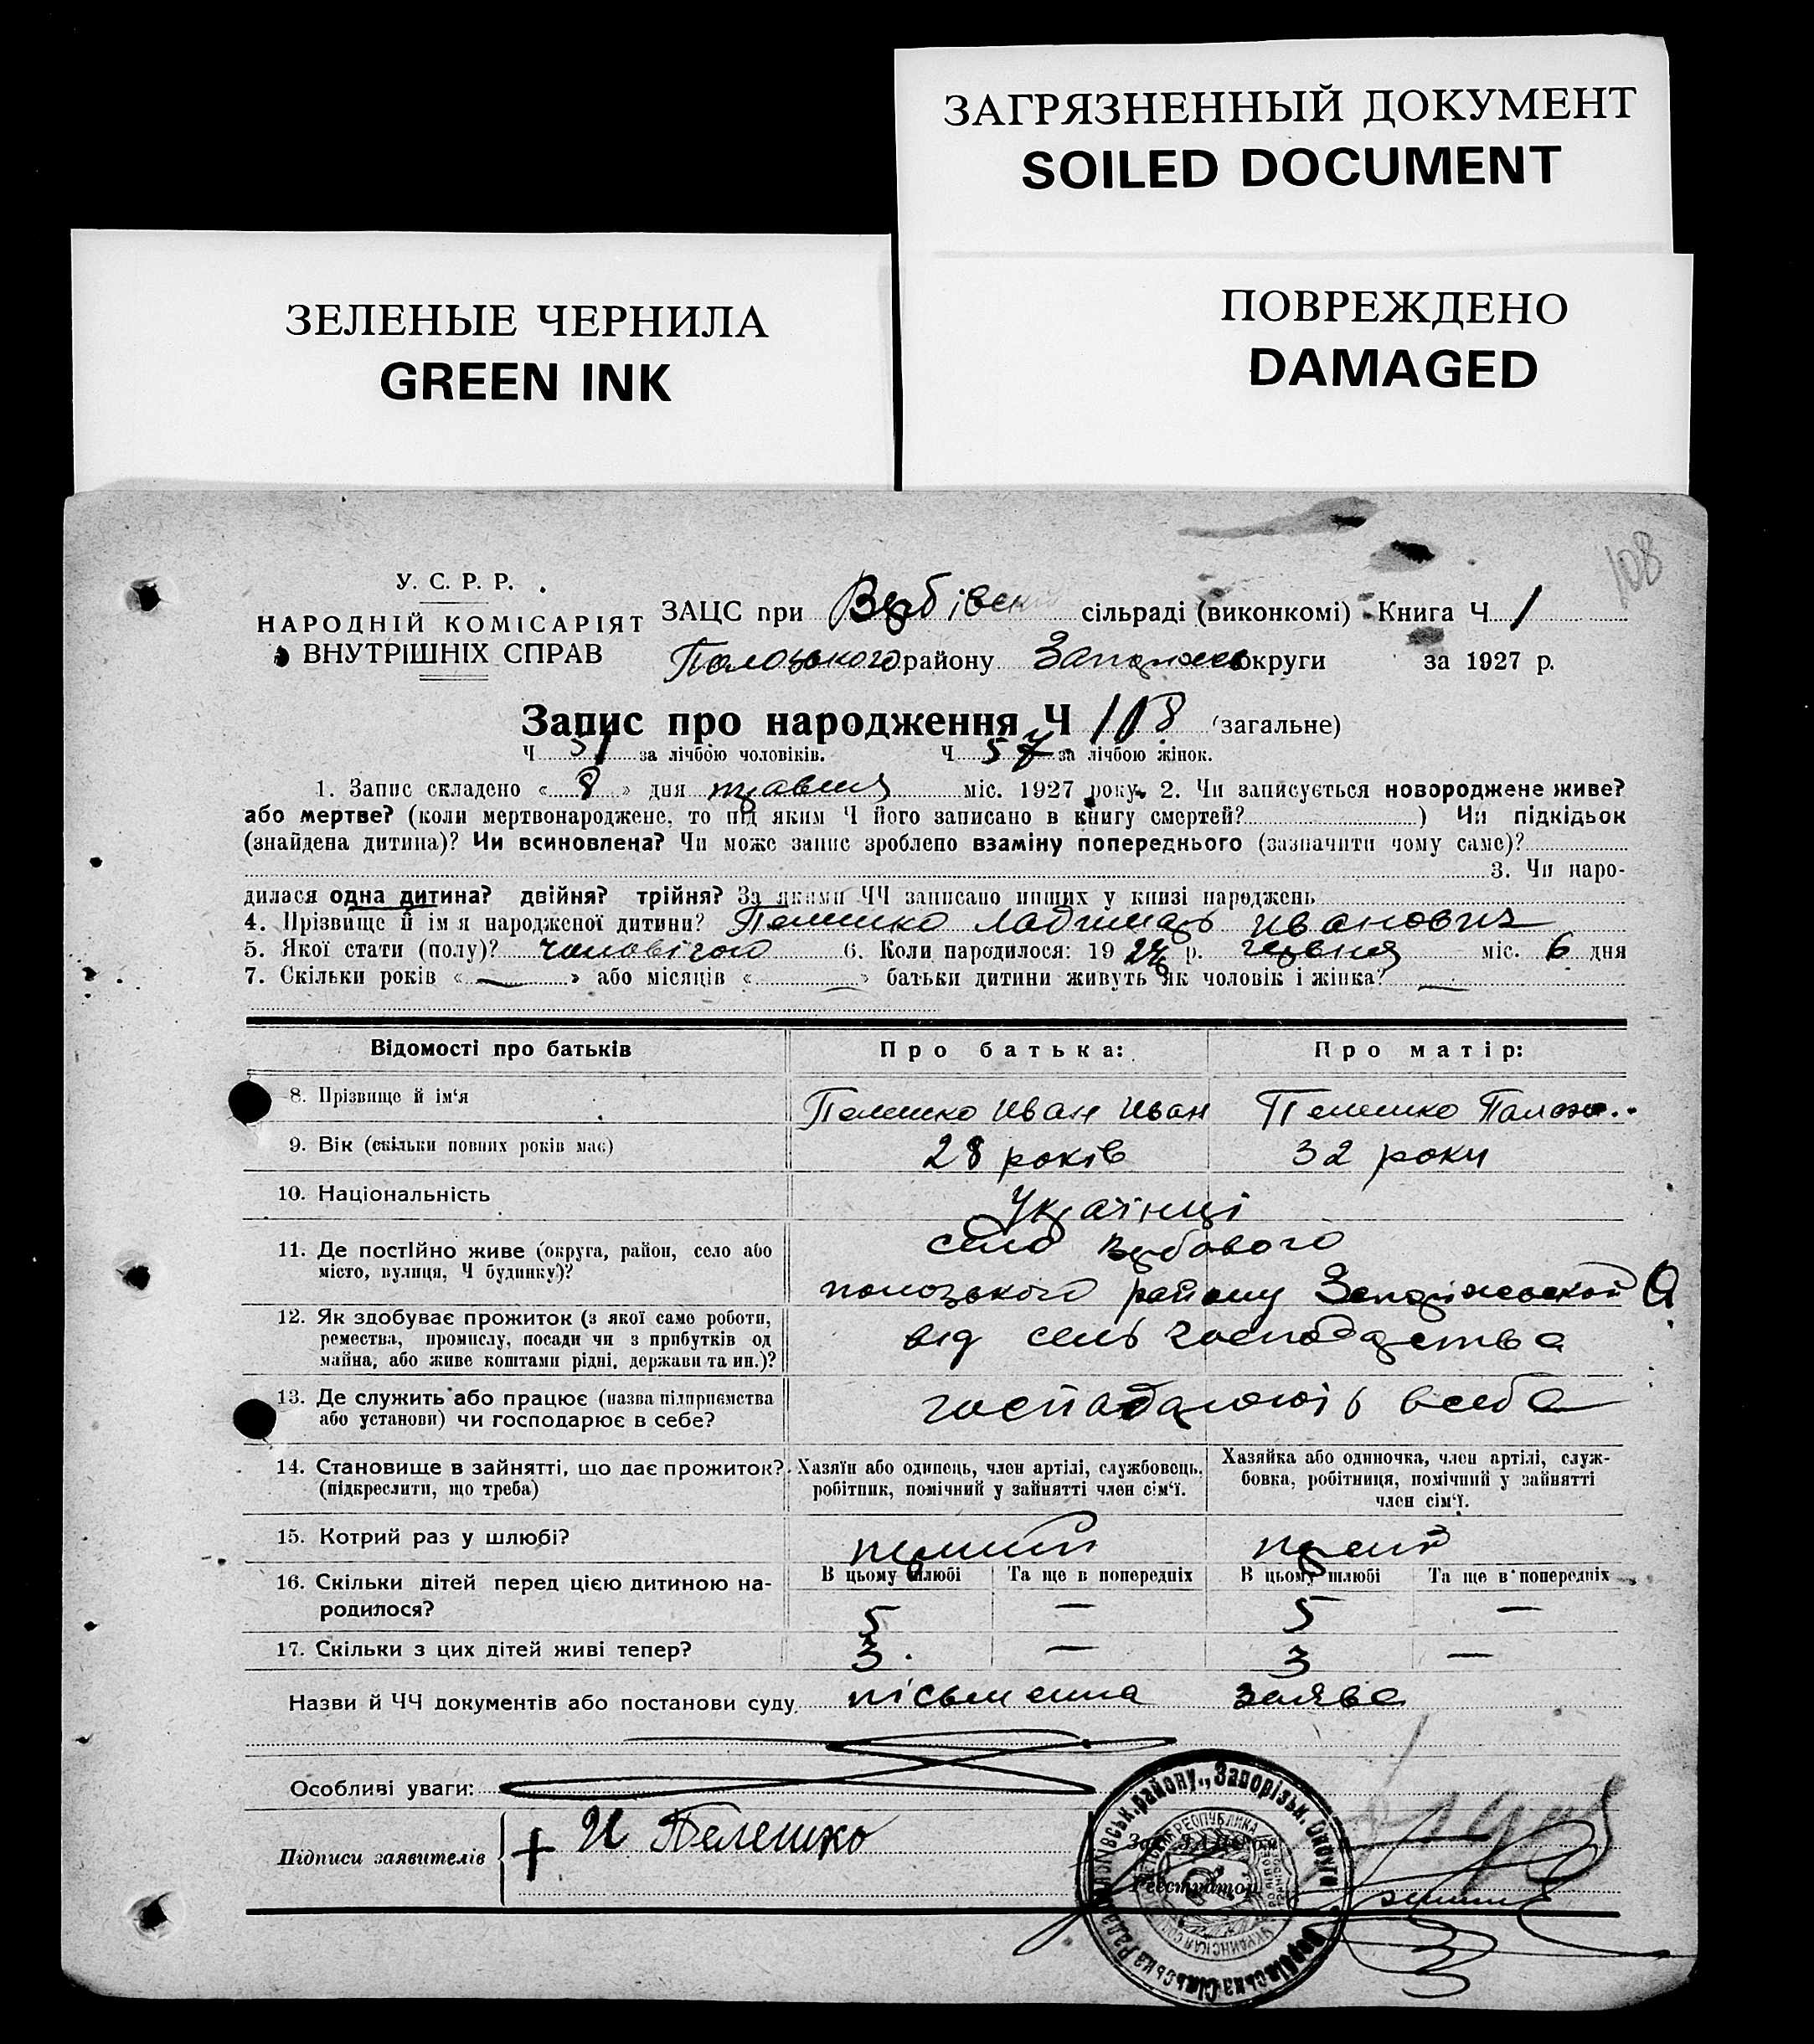 ЗАГРЯЗНЕННЫЙ ДОКУМЕНТ
SOILED DOCUMENT
ЗЕЛЕНЫЕ ЧЕРНИЛА
GREEN INK
ПОВРЕЖДЕНО
DAMAGED
108
У. С. Р. Р.
НАРОДНІЙ КОМІСАРІЯТ
ВНУТРІШНІХ СПРАВ
ЗАЦС при Вербівськ сільраді (виконкомі) Книга Ч. 1
Пологського району округи за 1927 р.
Запис про народження Ч 108 (загальне)
Ч 51 за лічбою чоловіків. Ч 57 за лічбою жінок.
1. Запис складено « 8 » дня травня міс. 1927 року. 2. Чи записується новороджене живе?
або мертве? (коли мертвонароджене, то під яким Ч його записано в книгу смертей? ) Чи підкідьок
(знайдена дитина)? Чи всиновлена? Чи може запис зроблено взаміну попереднього (зазначити чому саме)?
3. Чи наро-
дилася одна дитина? двійня? трійня? За якими ЧЧ записано инших у книзі народжень
4. Прізвище й ім'я народженої дитини? Пелешко Ладимар Иванович
5. Якої статі (полу)? чоловічою 6. Коли народилося: 19 р. червня міс. 6 дня
7. Скільки років « — » або місяців « — » батьки дитини живуть як чоловік і жінка? —
Відомості про батьків Про батька: Про матір:
8. Прізвище й ім'я Пелешко Иван Иван Пелешко
9. Вік (скільки повних років має) 28 років 32 роки
10. Національність Українці
11. Де постійно живе (округа, район, село або село Вербового
місто, вулиця, Ч будинку)? пологського району
12. Як здобуває прожиток (з якої саме роботи, від сельгосподарства
ремества, промислу, посади чи з прибутків од
майна, або живе коштами рідні, держави та ин.)?
13. Де служить або працює (назва підприємства
або установи) чи господарює в себе?
14. Становище в зайнятті, що дає прожиток? Хазяїн або одинець, член артілі, службовець, Хазяйка або одиночка, член артілі, служ-
(підкреслити, що треба) робітник, помічний у зайнятті член сім'ї. бовка, робітниця, помічний у зайнятті
член сім'ї.
15. Котрий раз у шлюбі?
16. Скільки дітей перед цією дитиною на- В цьому шлюбі Та ще в попередніх В цьому шлюбі Та ще в попередніх
родилося? 5 — 5 —
17. Скільки з цих дітей живі тепер? 3 — 3 —
Назви й ЧЧ документів або постанови суду письменна заява
Особливі уваги:
Підписи заявителів + И Пелешко
Зав. ЗАЦСом
Реєстратор